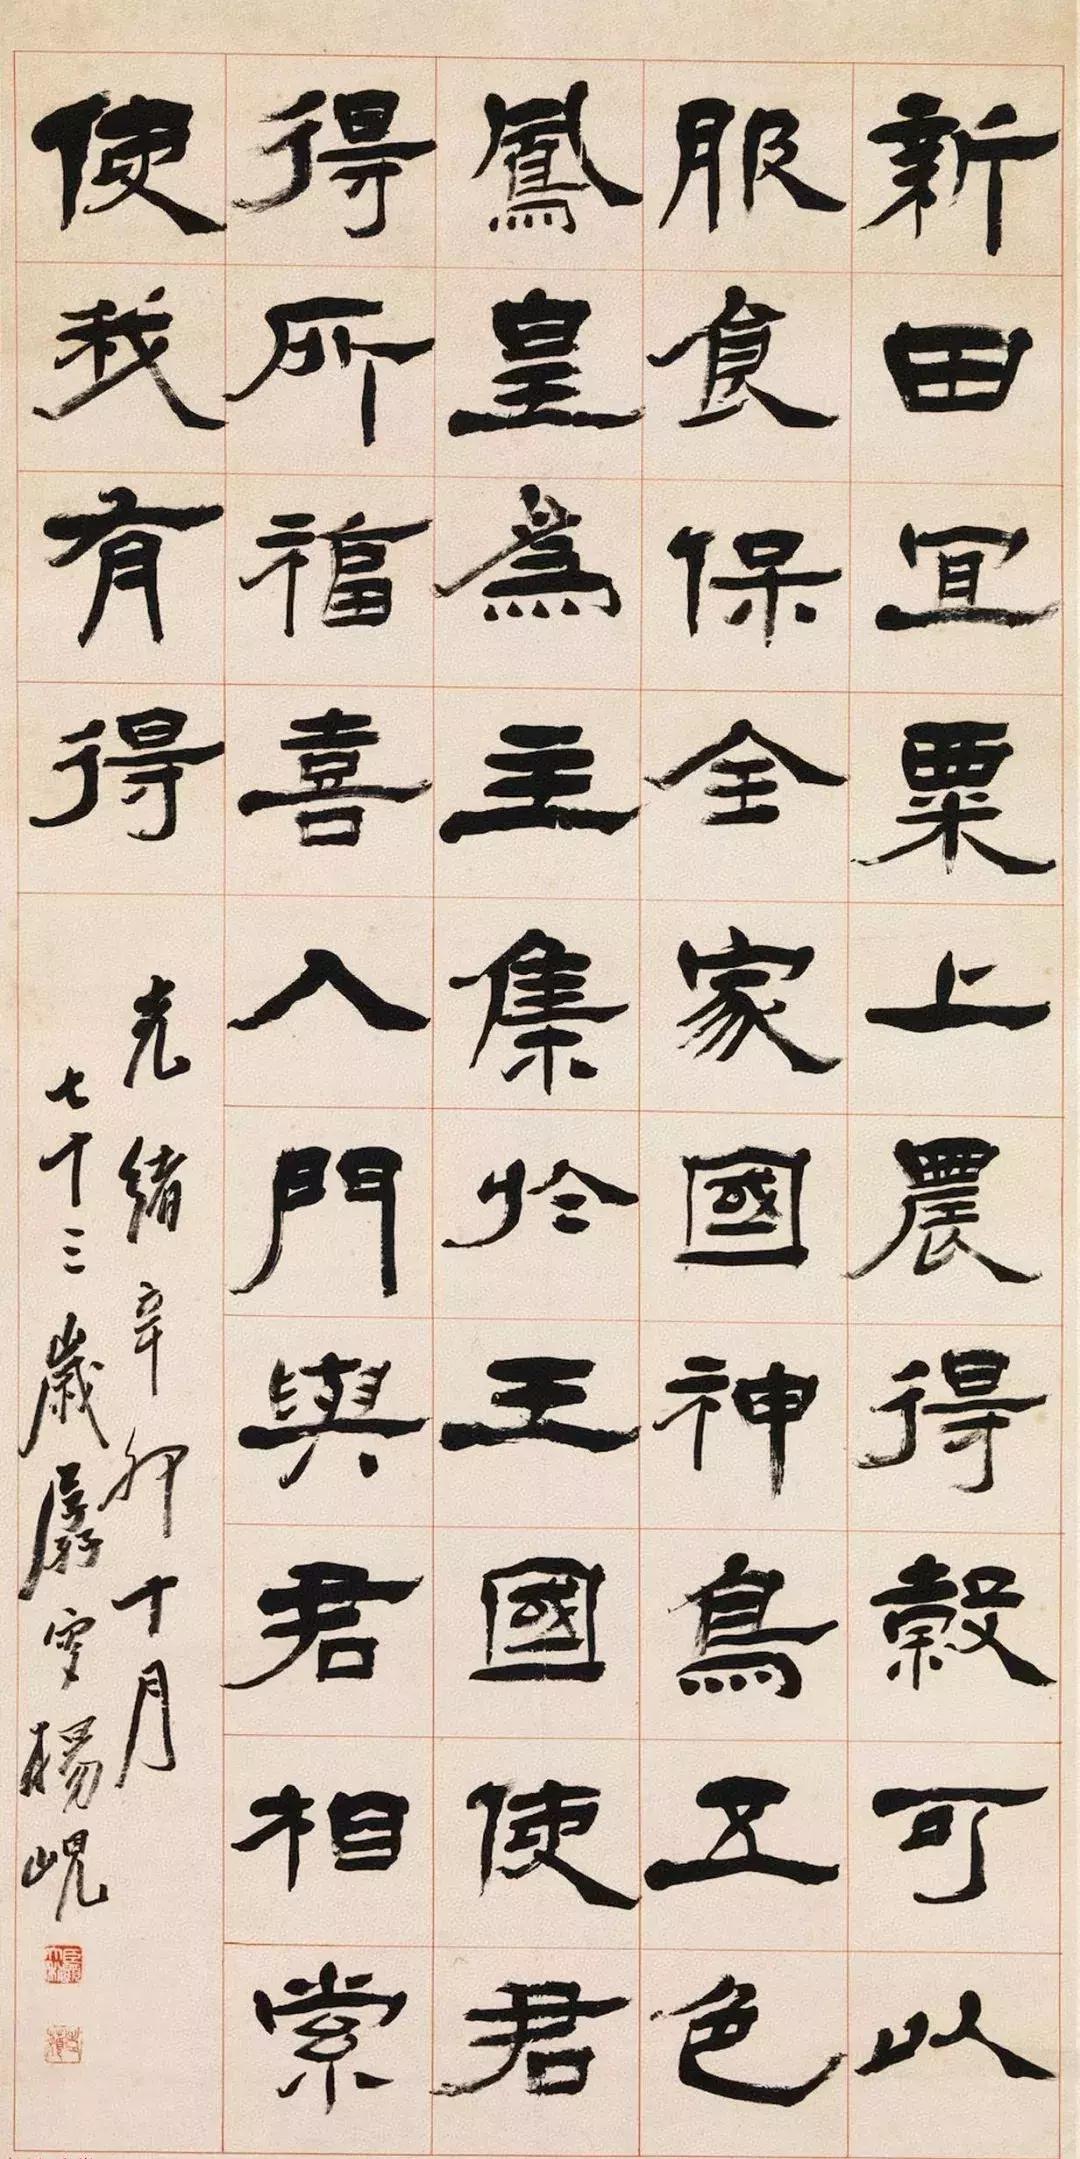 新田宜粟上農得穀可以
服食保全家國神鳥五色
鳳皇為主集於王國使君
得所福喜入門與君相索
使我有得
光緒辛卯十月
七十三歲孱叟楊峴